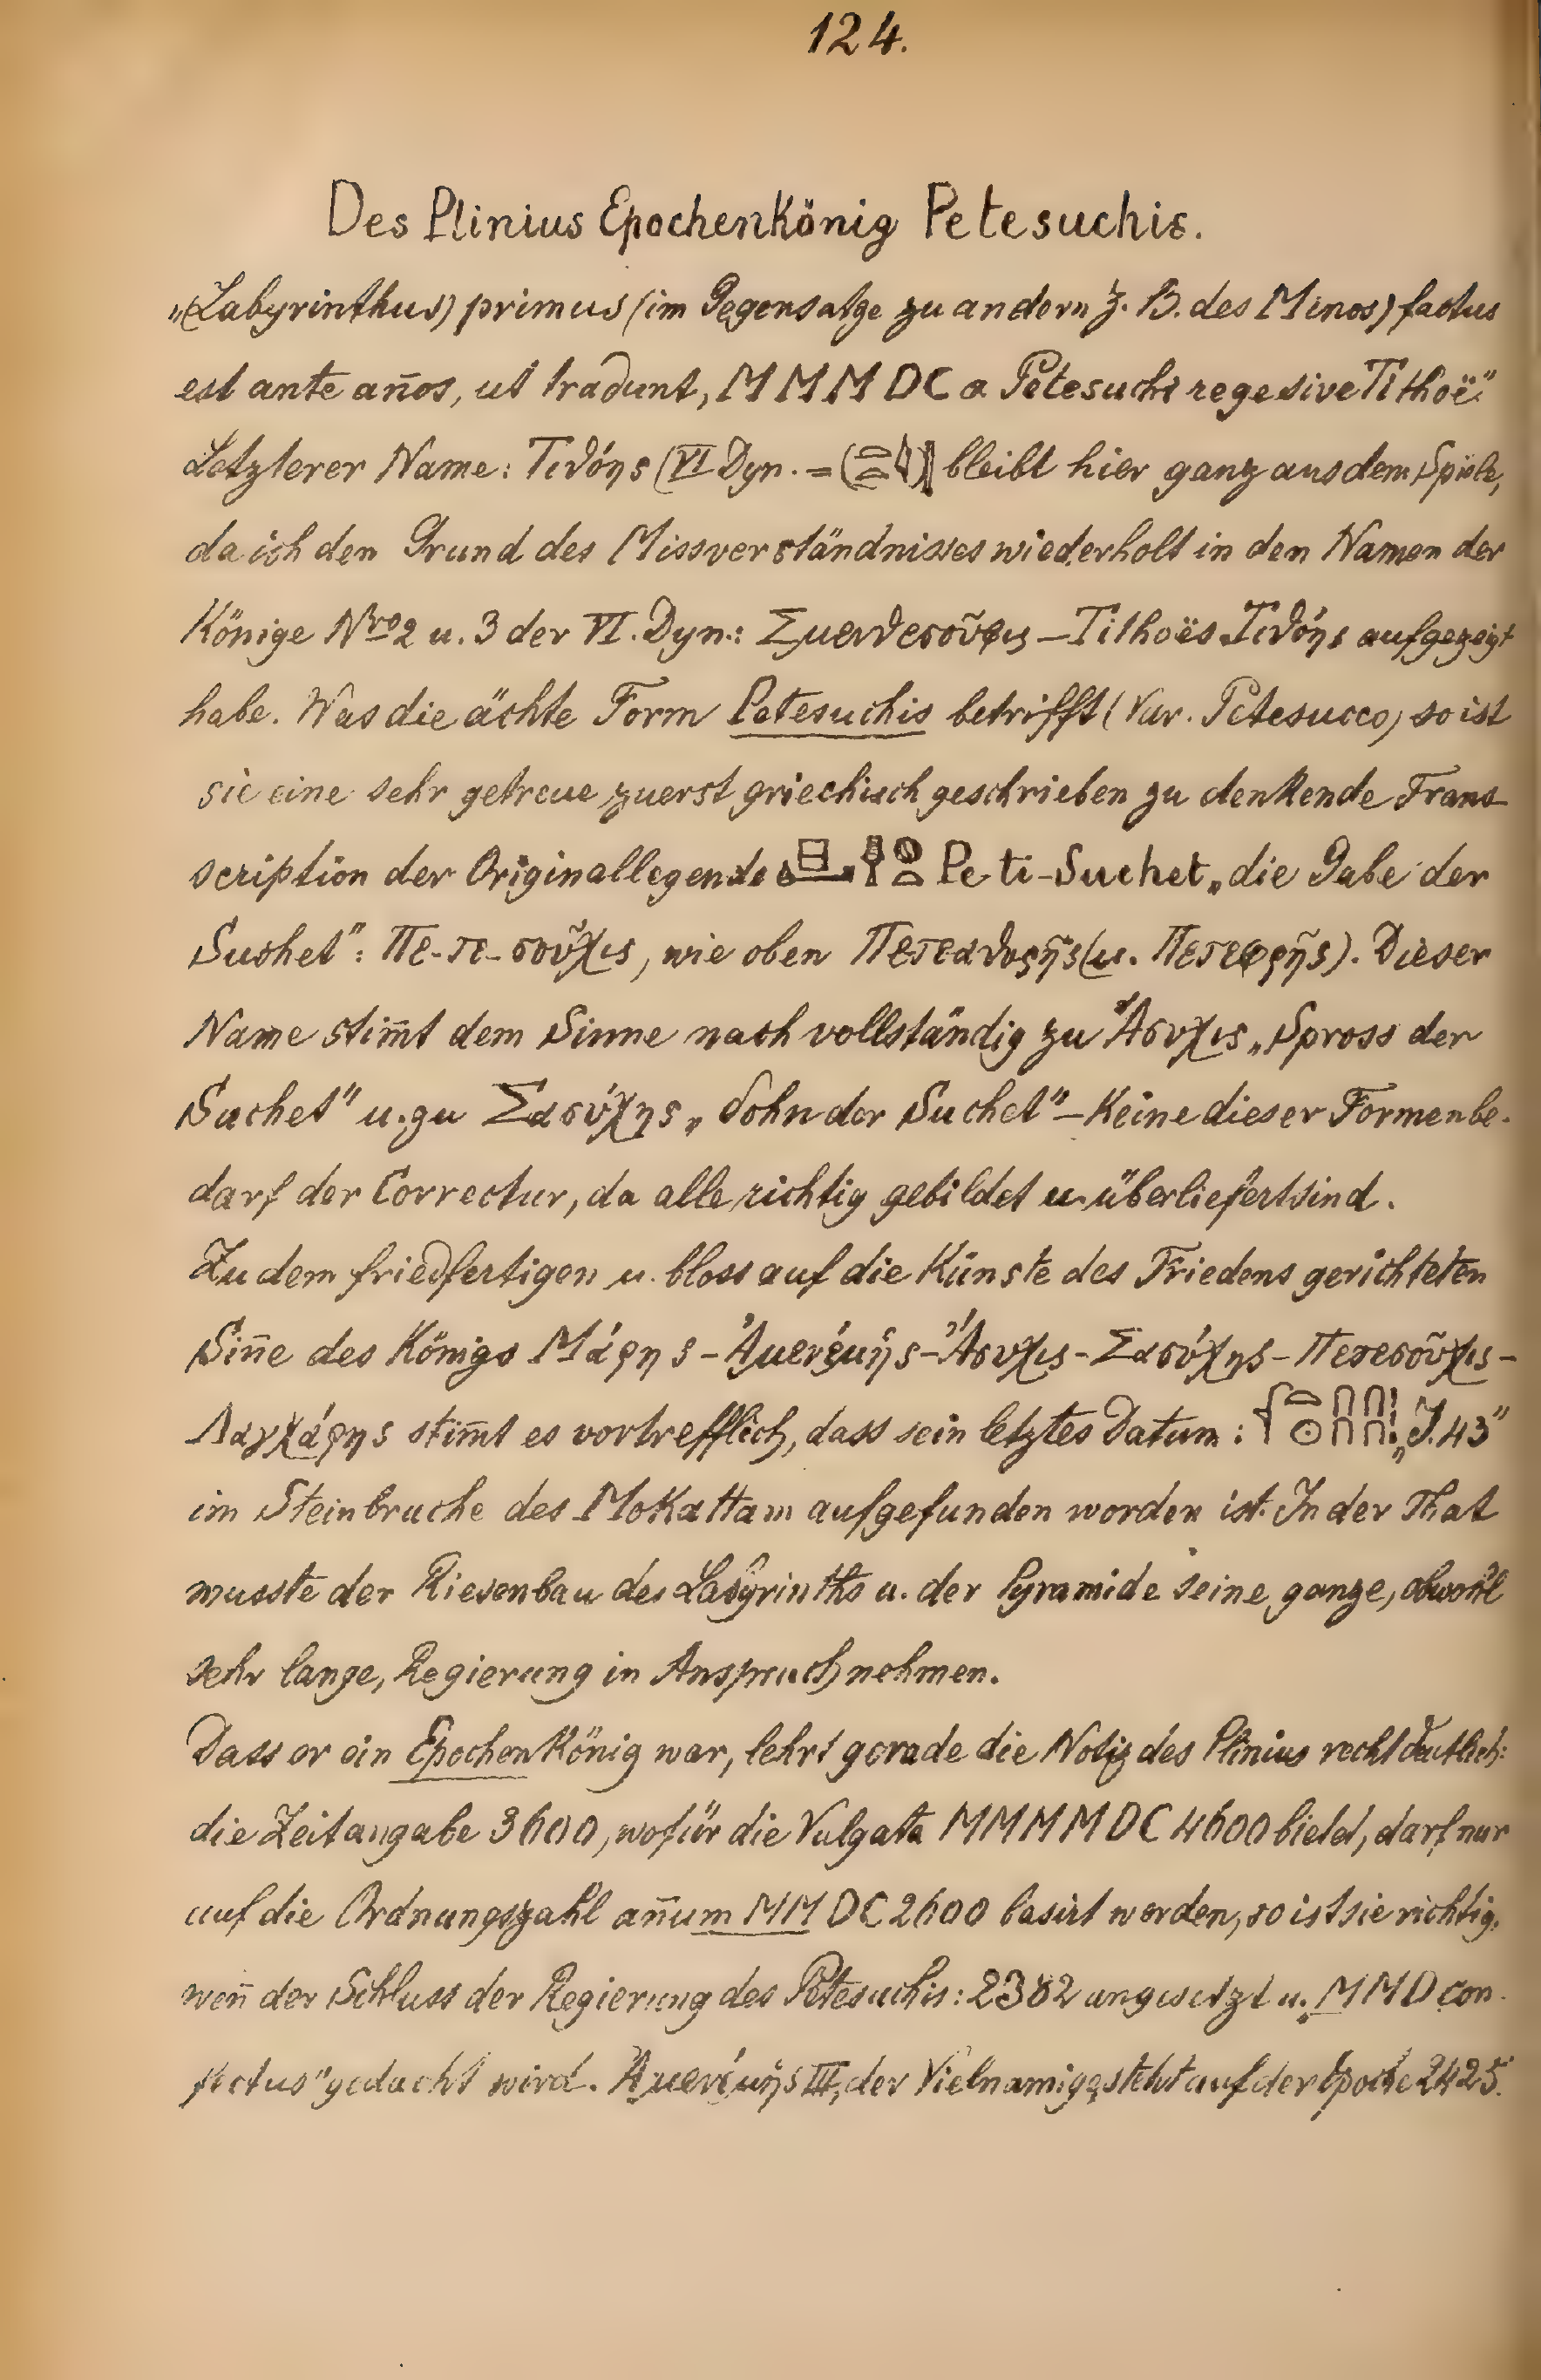 124.
Des Plinius Epochenkönig Petesuchis.
„(Labyrinthus) primus (im Gegensatze zu andern z. B. des Minos) factus
est ante an̄os, ut tradunt, MMMDC a Petesuchi rege sive Tithoë“
Letzterer Name: Τιθόης (VI Dyn. = bleibt hier ganz aus dem Spiele,
da ich den Grund des Missverständnisses wiederholt in den Namen der
Könige Nro 2 u. 3 der VI. Dyn.: Σμενθεσοῦφις – Tithoës Τιθόης aufgezeigt
habe. Was die ächte Form Petesuchis betrifft (Var. Petesucco) so ist
sie eine sehr getreue zuerst griechisch geschrieben zu denkende Trans-
scription der Originallegende Peti-Suchet „die Gabe der
Suchet“: Πε-τε-σοῦχις, wie oben Πετεαθυρῆς (u. Πετεφρῆς). Dieser
Name stim̄t dem Sinne nach vollständig zu Ἄσυχις „Spross der
Suchet“ u. zu Σασύχης „Sohn der Suchet“ – Keine dieser Formen be-
darf der Correctur, da alle richtig gebildet u. überliefert sind.
Zu dem friedfertigen u. bloss auf die Künste des Friedens gerichteten
Sin̄e des Königs Μάρης – Ἀμενέμης – Ἄσυχις – Σασύχης – Πετεσοῦχις –
Λαχάρης stim̄t es vortrefflich, dass sein letztes Datum: „J. 43“
im Steinbruche des Mokattam aufgefunden worden ist. In der That
musste der Riesenbau des Labyrinths u. der Pyramide seine ganze, obwohl
sehr lange, Regierung in Anspruch nehmen.
Dass er ein Epochenkönig war, lehrt gerade die Notiz des Plinius recht deutlich:
die Zeitangabe 3600, wofür die Vulgata MMMMDC 4600 bietet, darf nur
auf die Ordnungszahl an̄um MMDC 2600 basirt werden, so ist sie richtig,
wen̄ der Schluss der Regierung des Petesuchis: 2382 angesetzt u. MMD con-
fectus“ gedacht wird. Ἀμενέμης III, der Vielnamige, steht auf der Epoche 2425.